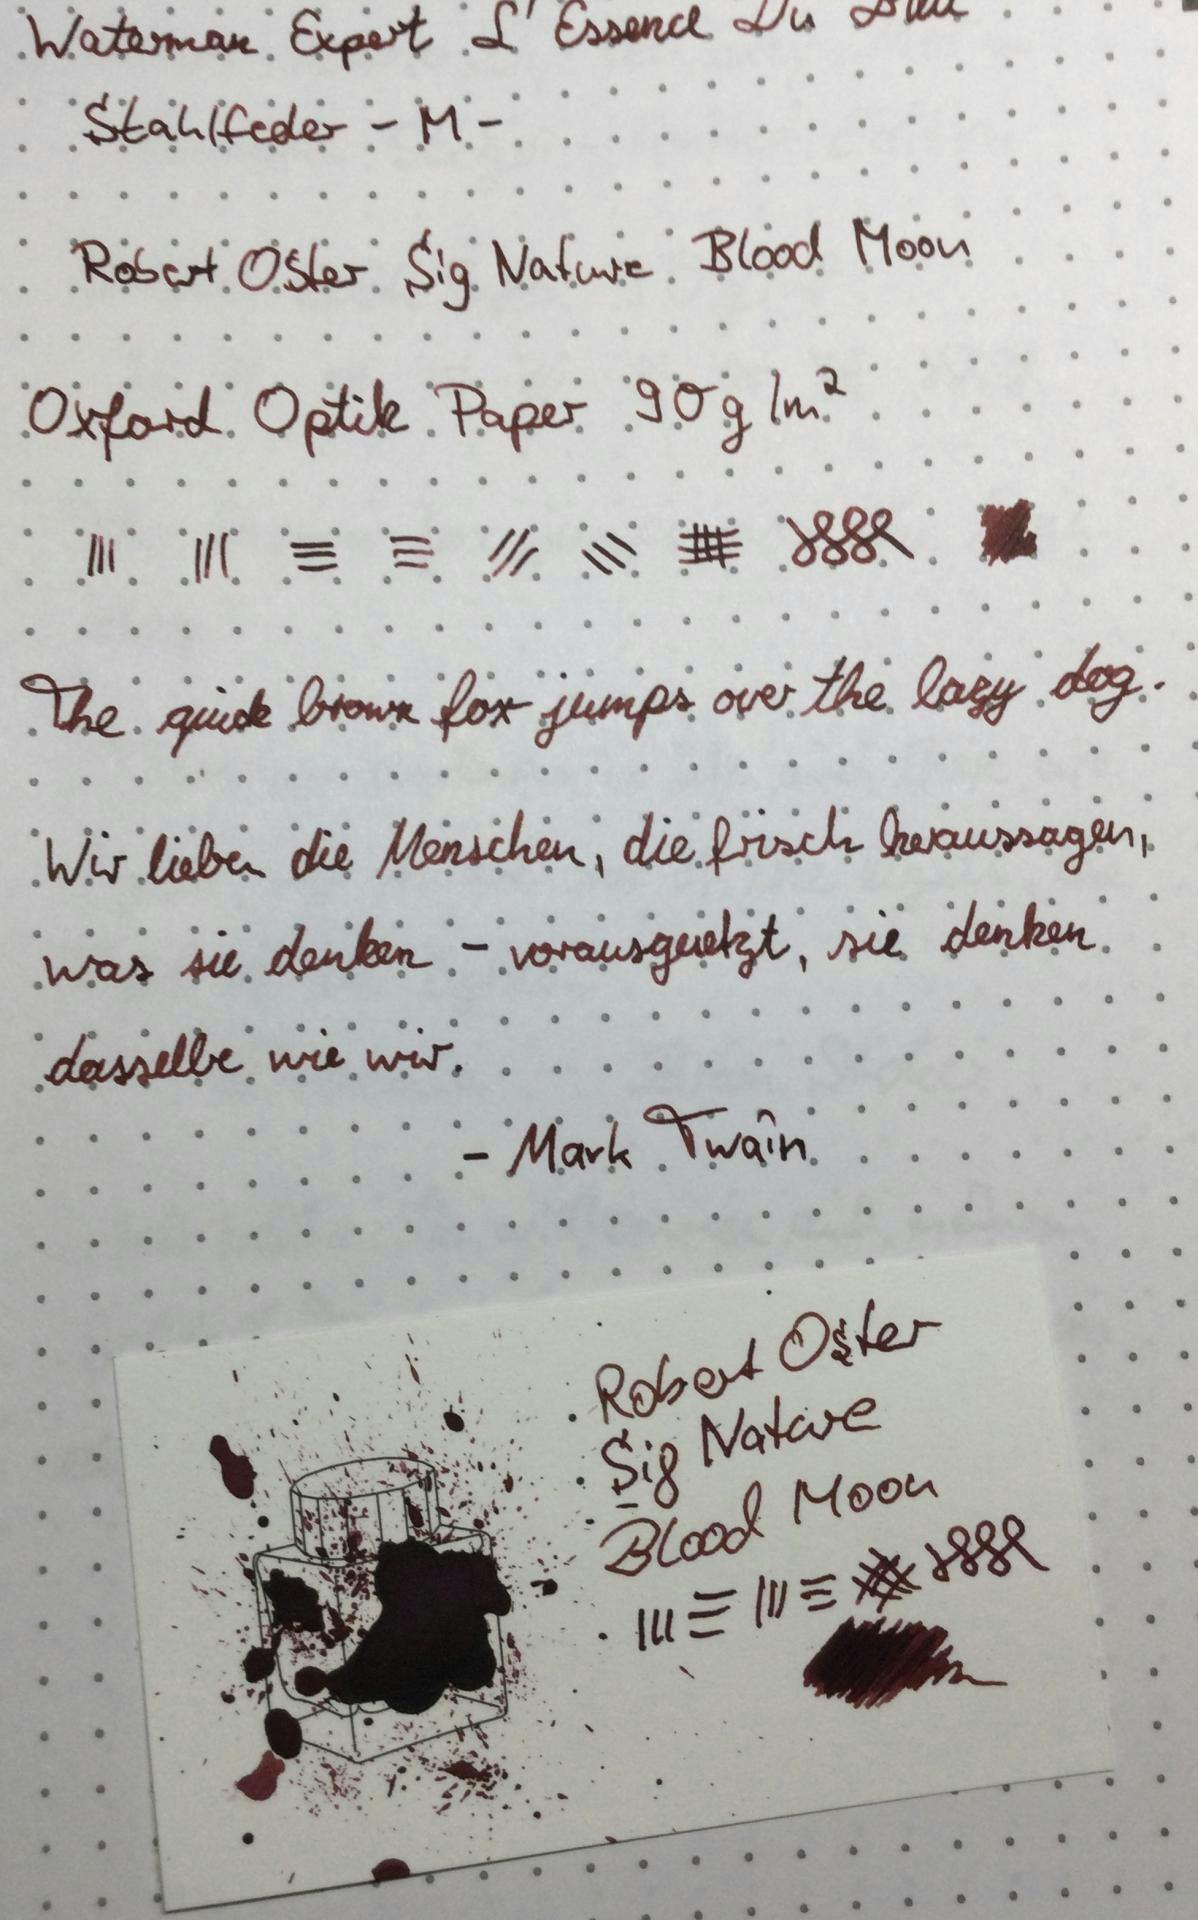 Waterman Expert L'Essence Du Bleu
Stahlfeder - M -
Robert Oster Sig Nature Blood Moon
Oxford Optik Paper 90g/m²
The quick brown fox jumps over the lazy dog.
Wir lieben die Menschen, die frisch heraussagen,
was sie denken - vorausgesetzt, sie denken
dasselbe wie wir.
- Mark Twain
Robert Oster
Sig Nature
Blood Moon